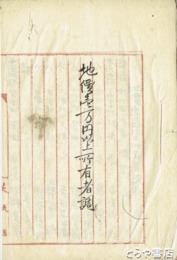 地價壱万円以上所有者調
とらや書店